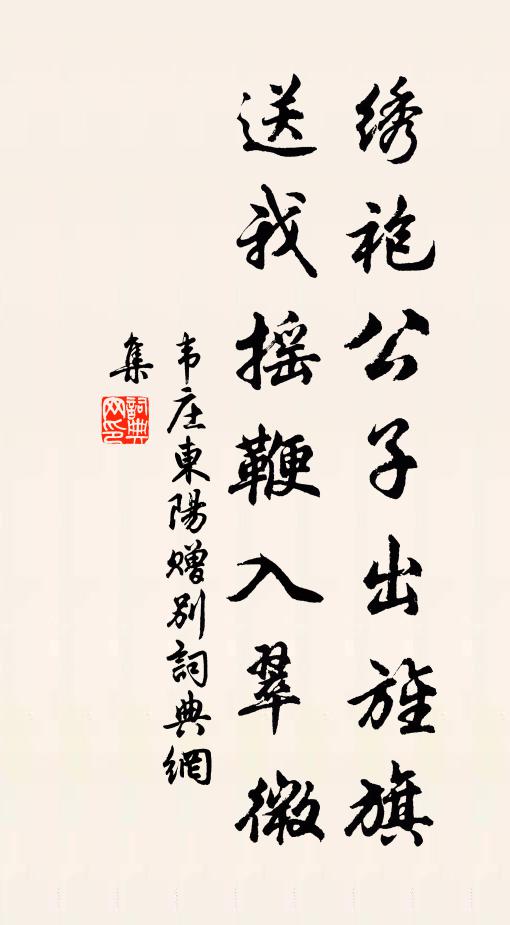 绣袍公子出旌旗
送我摇鞭入翠微
韦庄東陽赠别詞典網
集
詞典网印